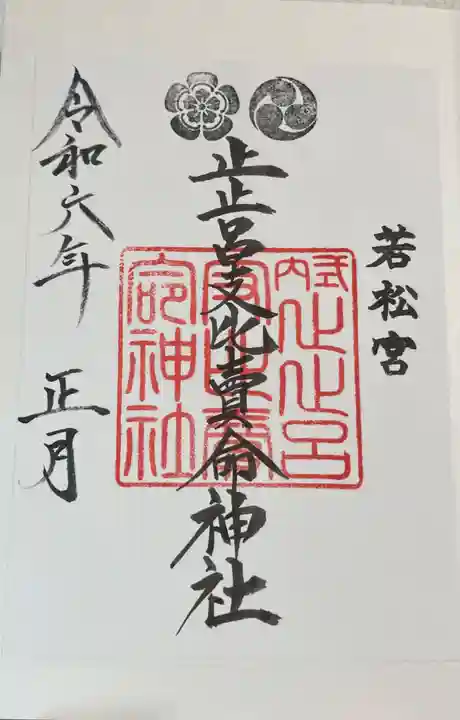 若松宮
止止呂支比賣命神社
式内止止呂
支比賣
命神社
令和六年 正月